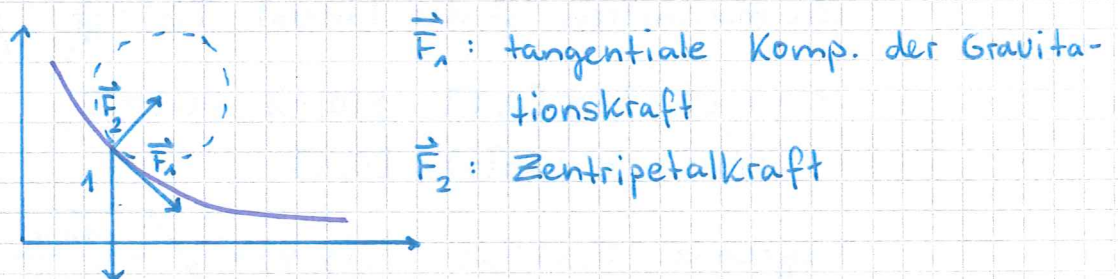 F₁: tangentiale Komp. der Gravita-
tionskraft
F₂: Zentripetalkraft
F₂
F₁
1